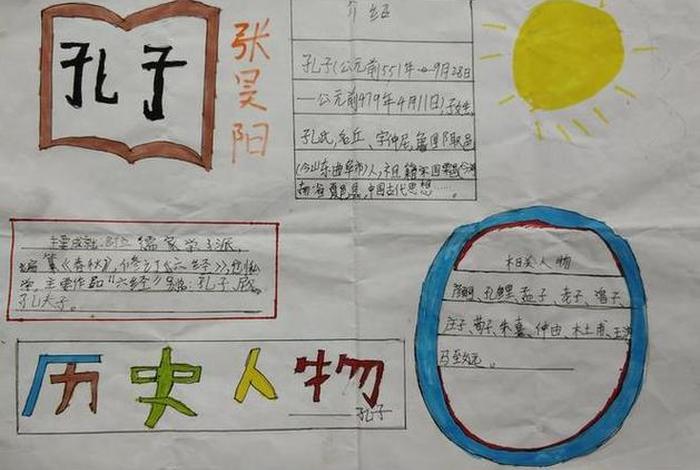 孔子
张昊阳
介绍
孔子(公元前551年 9月28日
—公元前479年4月11日),子姓,
孔氏,名丘、字仲尼,鲁国陬邑
(今山东曲阜市)人,祖籍宋国栗邑
夏邑县,中国古代思想……
主要成就:创立儒家学派,
编纂《春秋》,修订《六经》,
主要作品“六经”别名:孔子、尼
孔夫子。
历史人物
孔子
相关人物
颜回、孔鲤、孟子、老子、曾子、
庄子、荀子、朱熹、仲由、